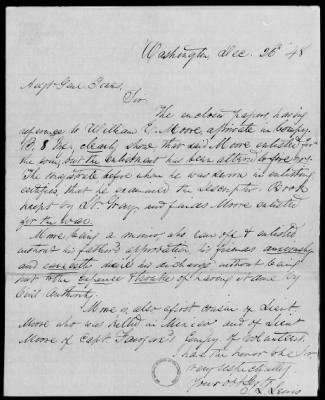 Washington Dec. 26th '48
Sir
The enclosed papers, having
reference to William E. Moore, a private in Compy.
clearly show that said Moore enlisted for
the war, but the enlistment has been altered to five yrs.
The magistrate before whom he was sworn in enlisting
certifies that he examined the descriptive Book
kept by Lt. Gray, and finds Moore enlisted
for the war.
Moore being a minor, who ran off & enlisted
without his father's approbation, his friends anxiously
and earnestly desire his discharge without being
put to the expense & trouble of having it done by
Civil Authority.
Moore is also a first cousin of Lieut.
Moore who was killed in Mexico and of Lieut
Moore of Capt. Compy. of Volunteers.
I have the honor to be Sir
very respectfully
Your obt Svt